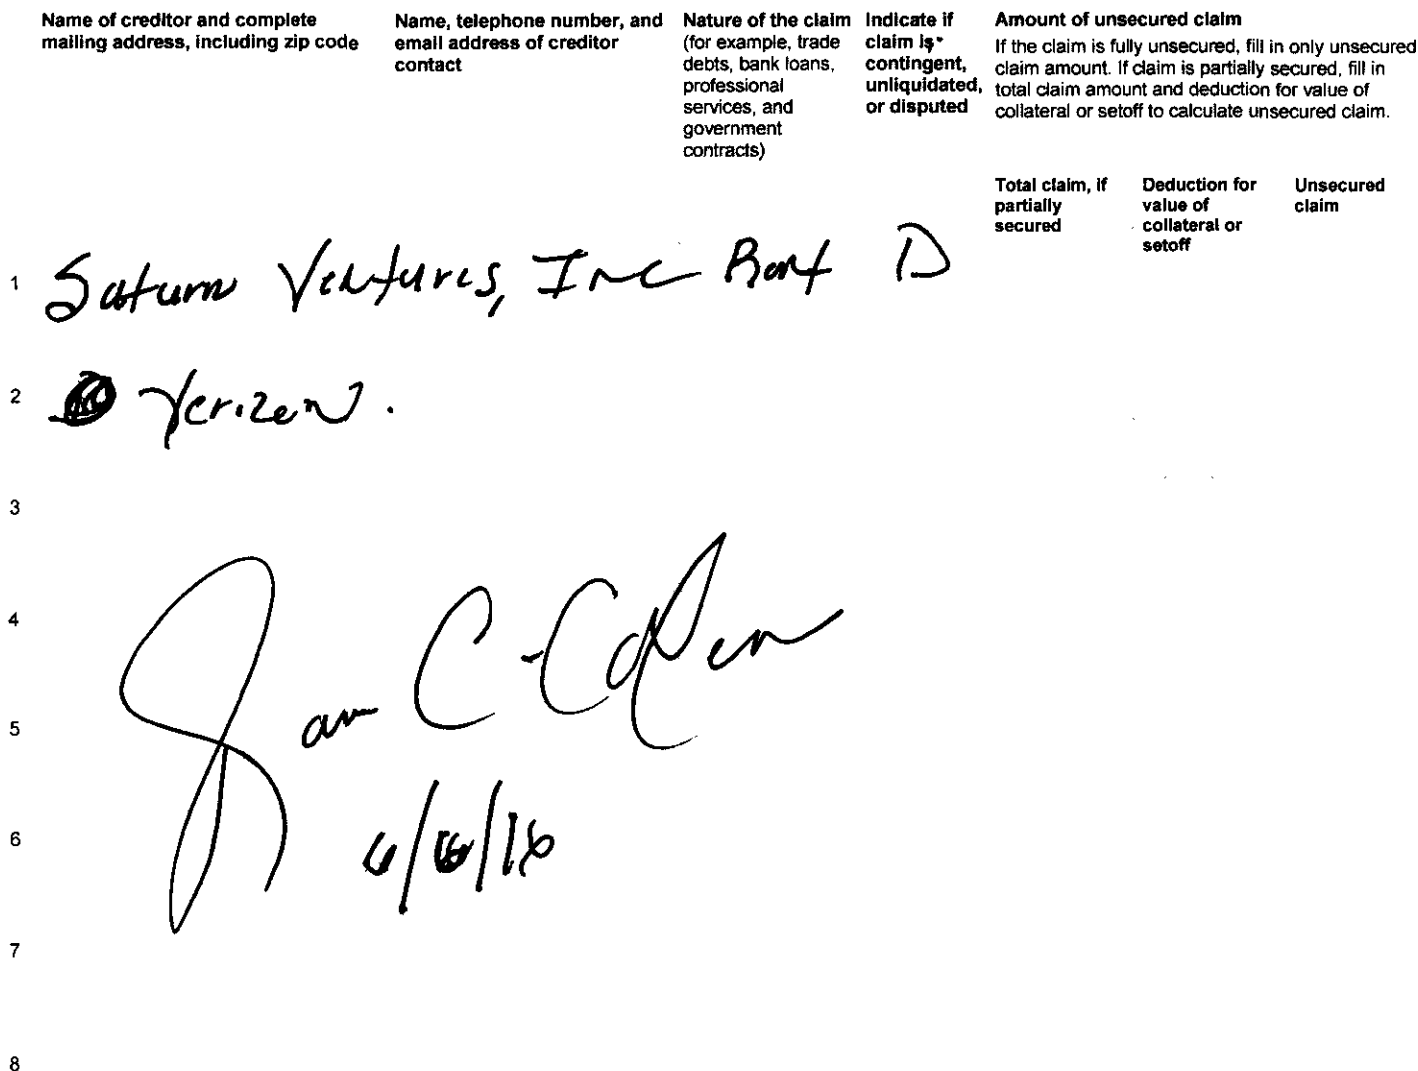 Name of creditor and complete mailing address, including zip code
Name, telephone number, and email address of creditor contact
Nature of the claim (for example, trade debts, bank loans, professional services, and government contracts)
Indicate if claim is contingent, unliquidated, or disputed
Amount of unsecured claim
If the claim is fully unsecured, fill in only unsecured claim amount. If claim is partially secured, fill in total claim amount and deduction for value of collateral or setoff to calculate unsecured claim.
Total claim, if partially secured
Deduction for value of collateral or setoff
Unsecured claim
1 Saturn Ventures, Inc Rent D
2 Verizon.
3
4
5
6 6/6/16
7
8